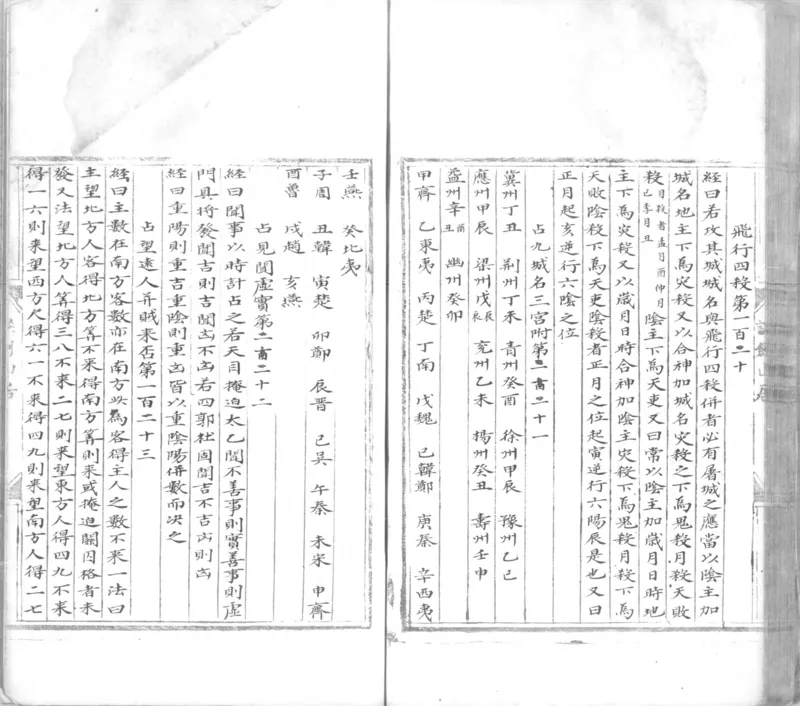 飛行四殺第一百二十
經曰若攻其城城名與飛行四殺併者必有屠城之應當以陰主加
城名地主下爲災殺又以合神加城名災殺之下爲鬼殺月殺天敗
殺月殺者孟月酉仲月巳季月丑陰主下爲天吏又曰常以陰主加歲月日時地
主下爲災殺又以歲月日時合神加陰主災殺下爲鬼殺月殺下爲
天敗陰殺下爲天吏陰殺者正月之位起寅逆行六陽辰是也又曰
正月起亥逆行六陰之位
占九城名三宮附第一百二十一
冀州丁丑 荆州丁未 青州癸酉 徐州甲辰 豫州乙巳
應州甲辰 梁州戊辰辰 兖州乙未 楊州癸丑 壽州壬申
益州辛酉丑 幽州癸卯
甲齊 乙東夷 丙楚 丁南 戊魏 己韓鄭 庚秦 辛西夷
壬燕 癸北夷
子周 丑韓 寅楚 卯鄭 辰晋 巳吳 午秦 未宋 申齊
酉魯 戌趙 亥燕
占見聞虛實第一百二十二
經曰聞事以時計占之若天目掩迫太乙聞不善事則實善事則虛
門具將發聞吉則吉聞凶不凶若四郭杜固聞吉不吉凶則凶
經曰重陽則重吉重陰則重凶皆以重陰陽併數而决之
占望遠人并賊来否第一百二十三
經曰主數在南方客數亦在南方此爲客得主人之數不来一法曰
主望北方人客得北方筭不来得南方筭則来或掩迫關囚格者未
發又法望北方人筭得三八不来二七則来望東方人得四九不来
得一六則来望西方人得六一不来得四九則来望南方人得二七